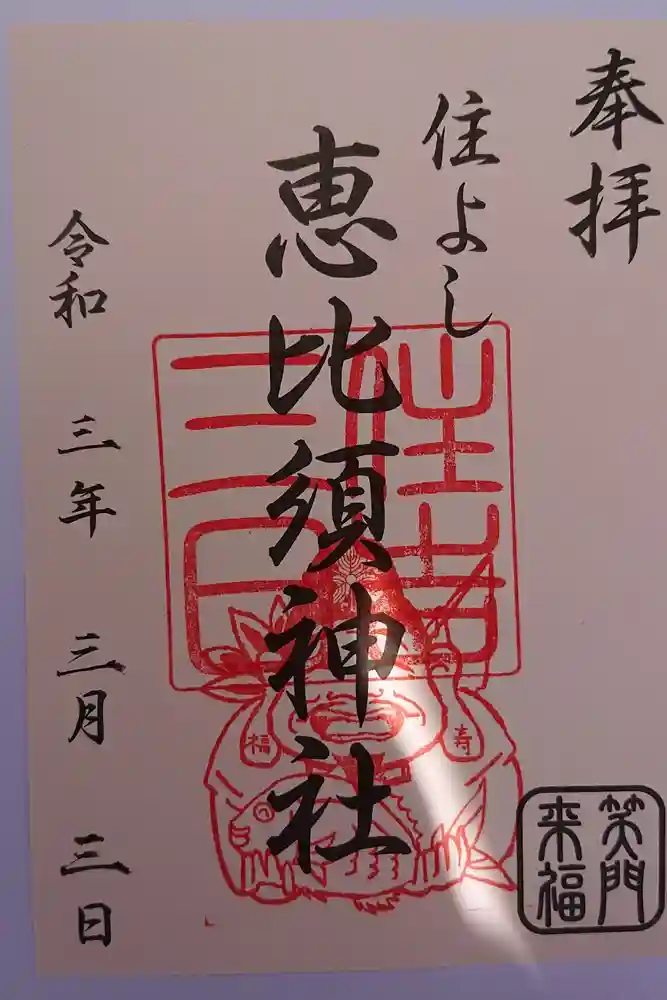 奉拝
住よし
恵比須神社
令和三年三月三日
笑門
来福
福
寿